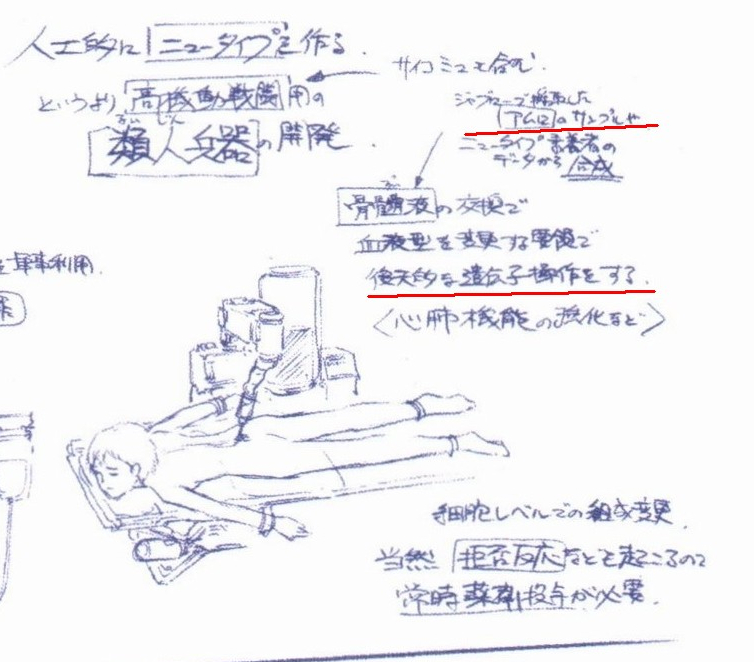 人工的にニュータイプを作る.
というより高機動戦闘用の
類人兵器の開発.
るいじん
サイコミュも含む.
ジャブローで採取した
「アムロ」のサンプルや
ニュータイプ素養者の
データから合成
骨髄液の交換で
血液型を変更する要領で
後天的な遺伝子操作をする.
〈心肺機能の強化など〉
軍事利用.
細胞レベルでの組成変更.
当然拒否反応なども起こるので
常時薬剤投与が必要.